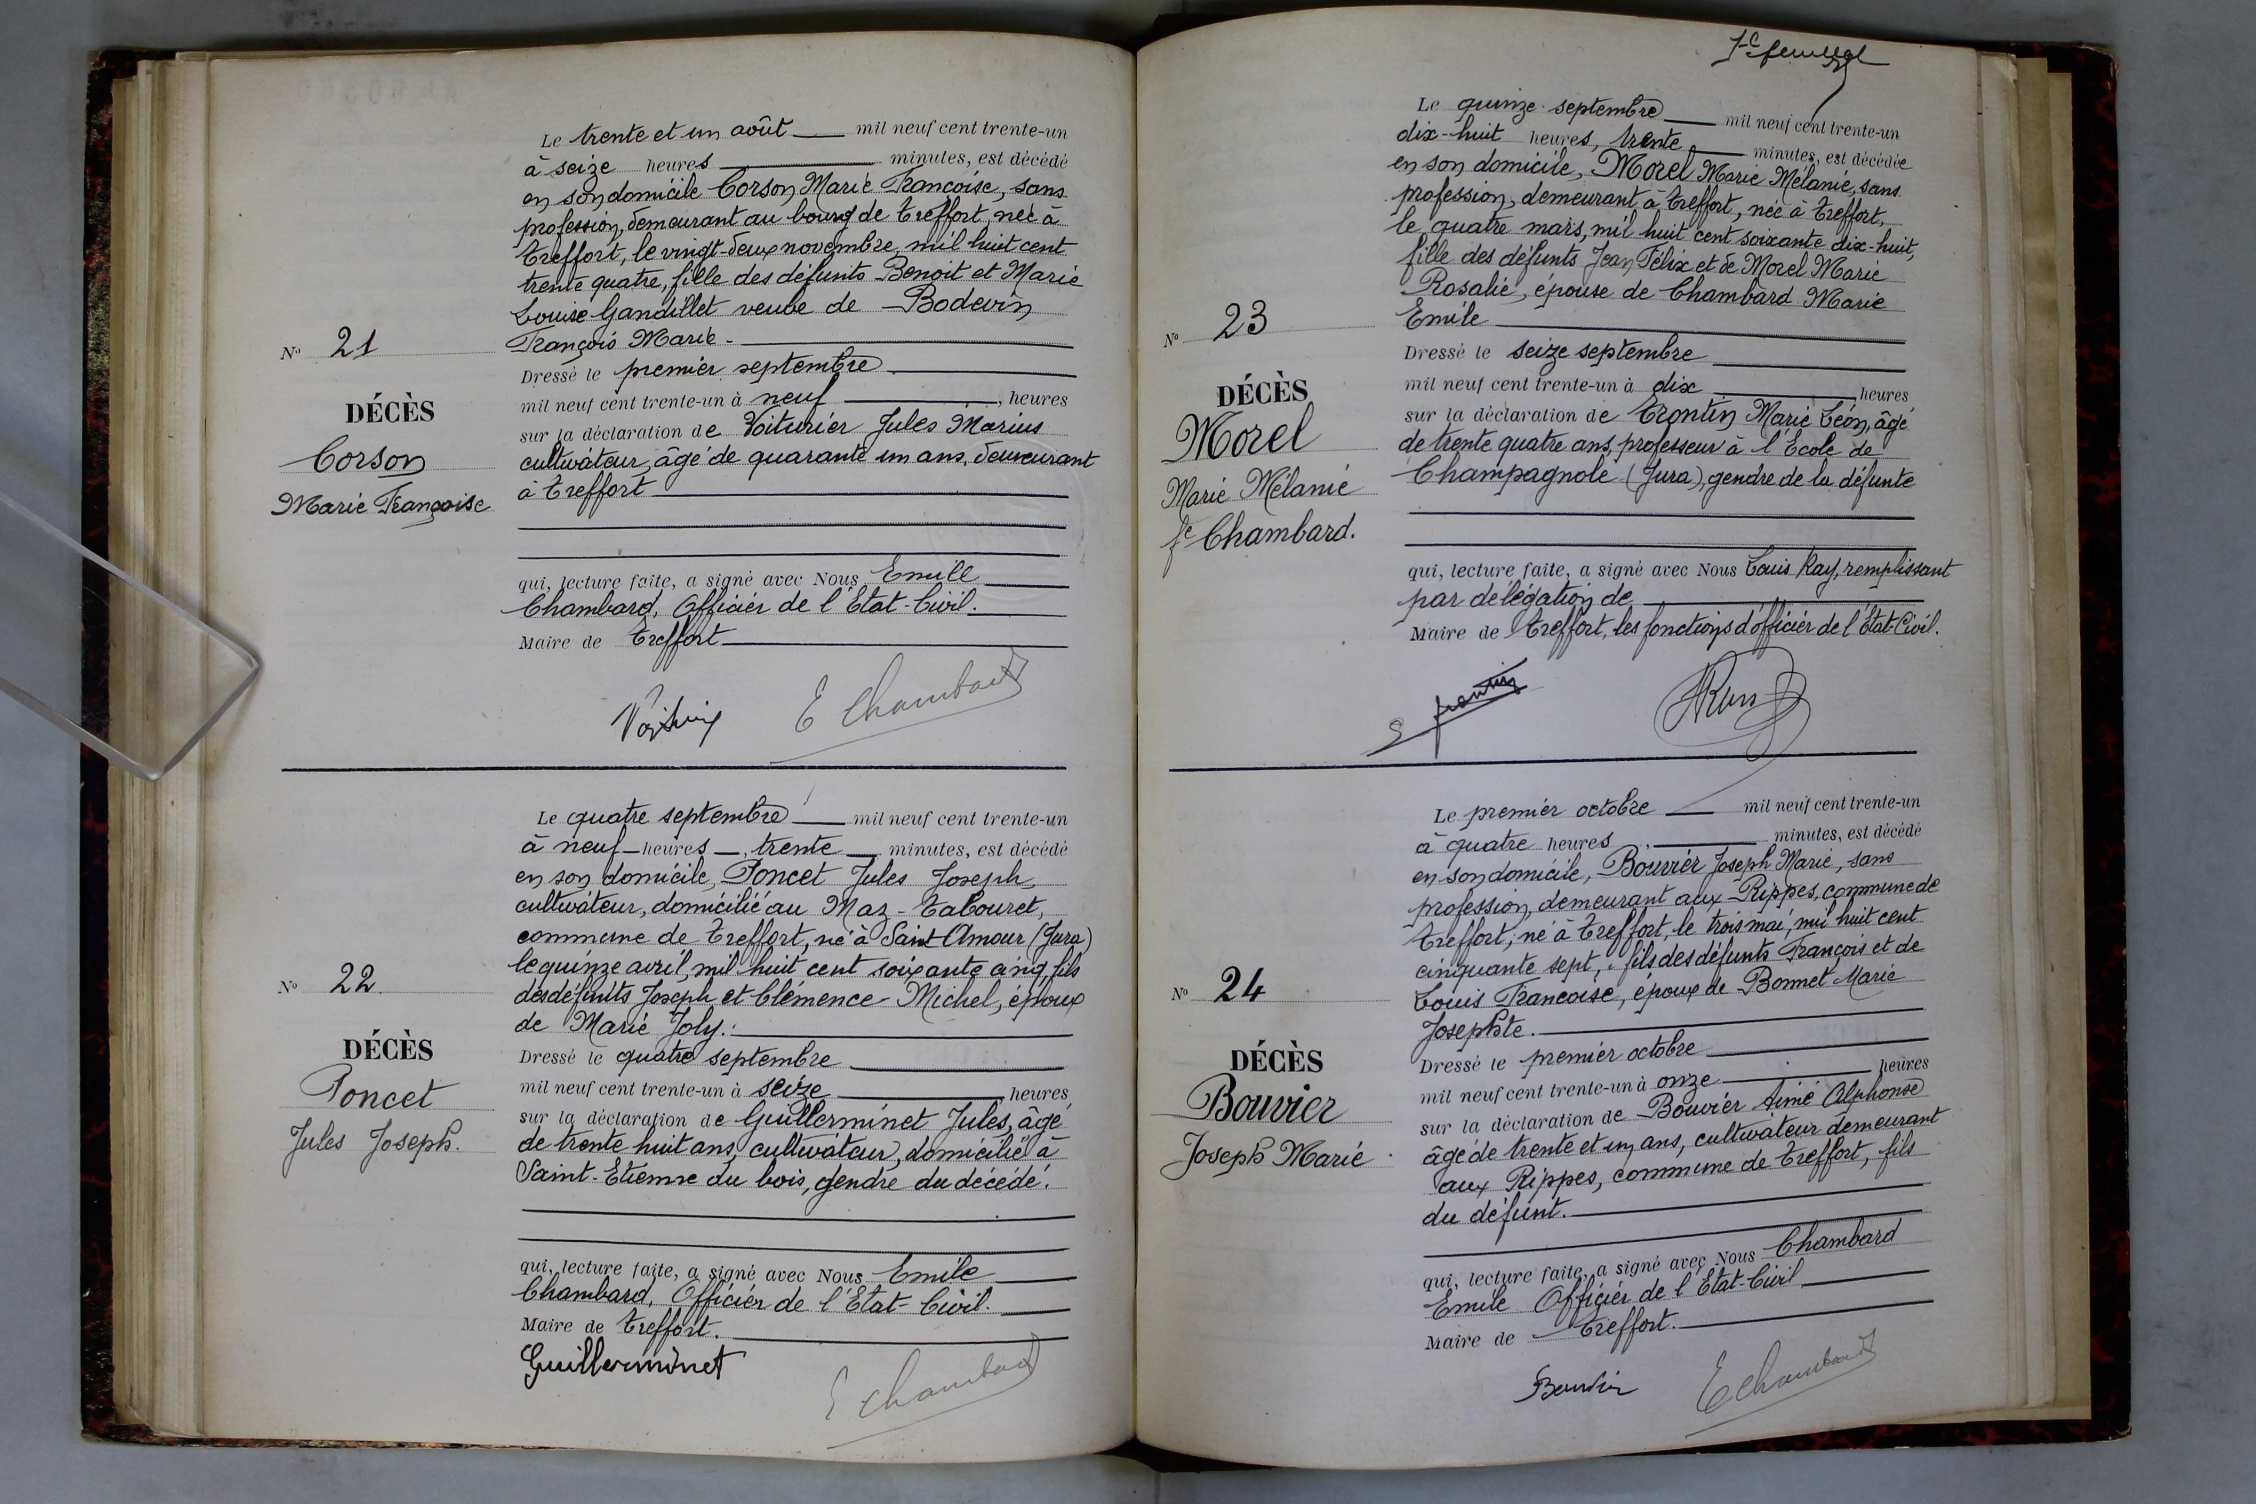 Le trente et un août mil neuf cent trente-un
à seize heures minutes, est décédé
en son domicile Corson Marie Françoise, sans
profession, demeurant au bourg de Treffort, née à
Treffort, le vingt-deux novembre mil huit cent
trente quatre, fille des défunts Benoit et Marie
Louise Gandillet veuve de Bodevin
François Marie.
N° 21
Dressé le premier septembre
mil neuf cent trente-un à neuf, heures
DÉCÈS
sur la déclaration de Voiturier Jules Marius
Corson
cultivateur, âgé de quarante un ans, demeurant
Marie Françoise
à Treffort
qui, lecture faite, a signé avec Nous Emile
Chambard, Officier de l'Etat-Civil.
Maire de Treffort
E Chambard
Le quatre septembre mil neuf cent trente-un
à neuf heures, trente minutes, est décédé
en son domicile, Poncet Jules Joseph,
cultivateur, domicilié au Maz-Tabouret,
commune de Treffort, né à Saint Amour (Jura)
le quinze avril, mil huit cent soixante cinq, fils
des défunts Joseph et Clémence Michel, époux
de Marie Joly.
N° 22
Dressé le quatre septembre
DÉCÈS
mil neuf cent trente-un à seize heures
Poncet
sur la déclaration de Guillerminet Jules, âgé
Jules Joseph.
de trente huit ans, cultivateur, domicilié à
Saint-Etienne du bois, gendre du décédé.
qui, lecture faite, a signé avec Nous Emile
Chambard, Officier de l'Etat-Civil.
Maire de Treffort.
Guillerminet
E Chambard
Le quinze septembre mil neuf cent trente-un
dix-huit heures, trente minutes, est décédée
en son domicile, Morel Marie Mélanie, sans
profession, demeurant à Treffort, née à Treffort,
le quatre mars, mil huit cent soixante dix-huit,
fille des défunts Jean Félix et de Morel Marie
Rosalie, épouse de Chambard Marie
Emile
N° 23
Dressé le seize septembre
mil neuf cent trente-un à dix heures
DÉCÈS
sur la déclaration de Trontin Marie Léon, âgé
Morel
de trente quatre ans, professeur à l'Ecole de
Marie Mélanie
Champagnole (Jura), gendre de la défunte
fe Chambard.
qui, lecture faite, a signé avec Nous Louis Ray, remplissant
par délégation de
Maire de Treffort, les fonctions d'officier de l'Etat-Civil.
Le premier octobre mil neuf cent trente-un
à quatre heures minutes, est décédé
en son domicile, Bouvier Joseph Marie, sans
profession, demeurant aux Rippes, commune de
Treffort, né à Treffort, le trois mai, mil huit cent
cinquante sept, fils des défunts François et de
Louis Francoise, époux de Bonnet Marie
Josephte.
N° 24
Dressé le premier octobre
DÉCÈS
mil neuf cent trente-un à onze heures
Bouvier
sur la déclaration de Bouvier Aimé Alphonse
Joseph Marie
âgé de trente et un ans, cultivateur demeurant
aux Rippes, commune de Treffort, fils
du défunt.
qui, lecture faite, a signé avec Nous Chambard
Emile Officier de l'Etat-Civil
Maire de Treffort.
Bouvier
E Chambard